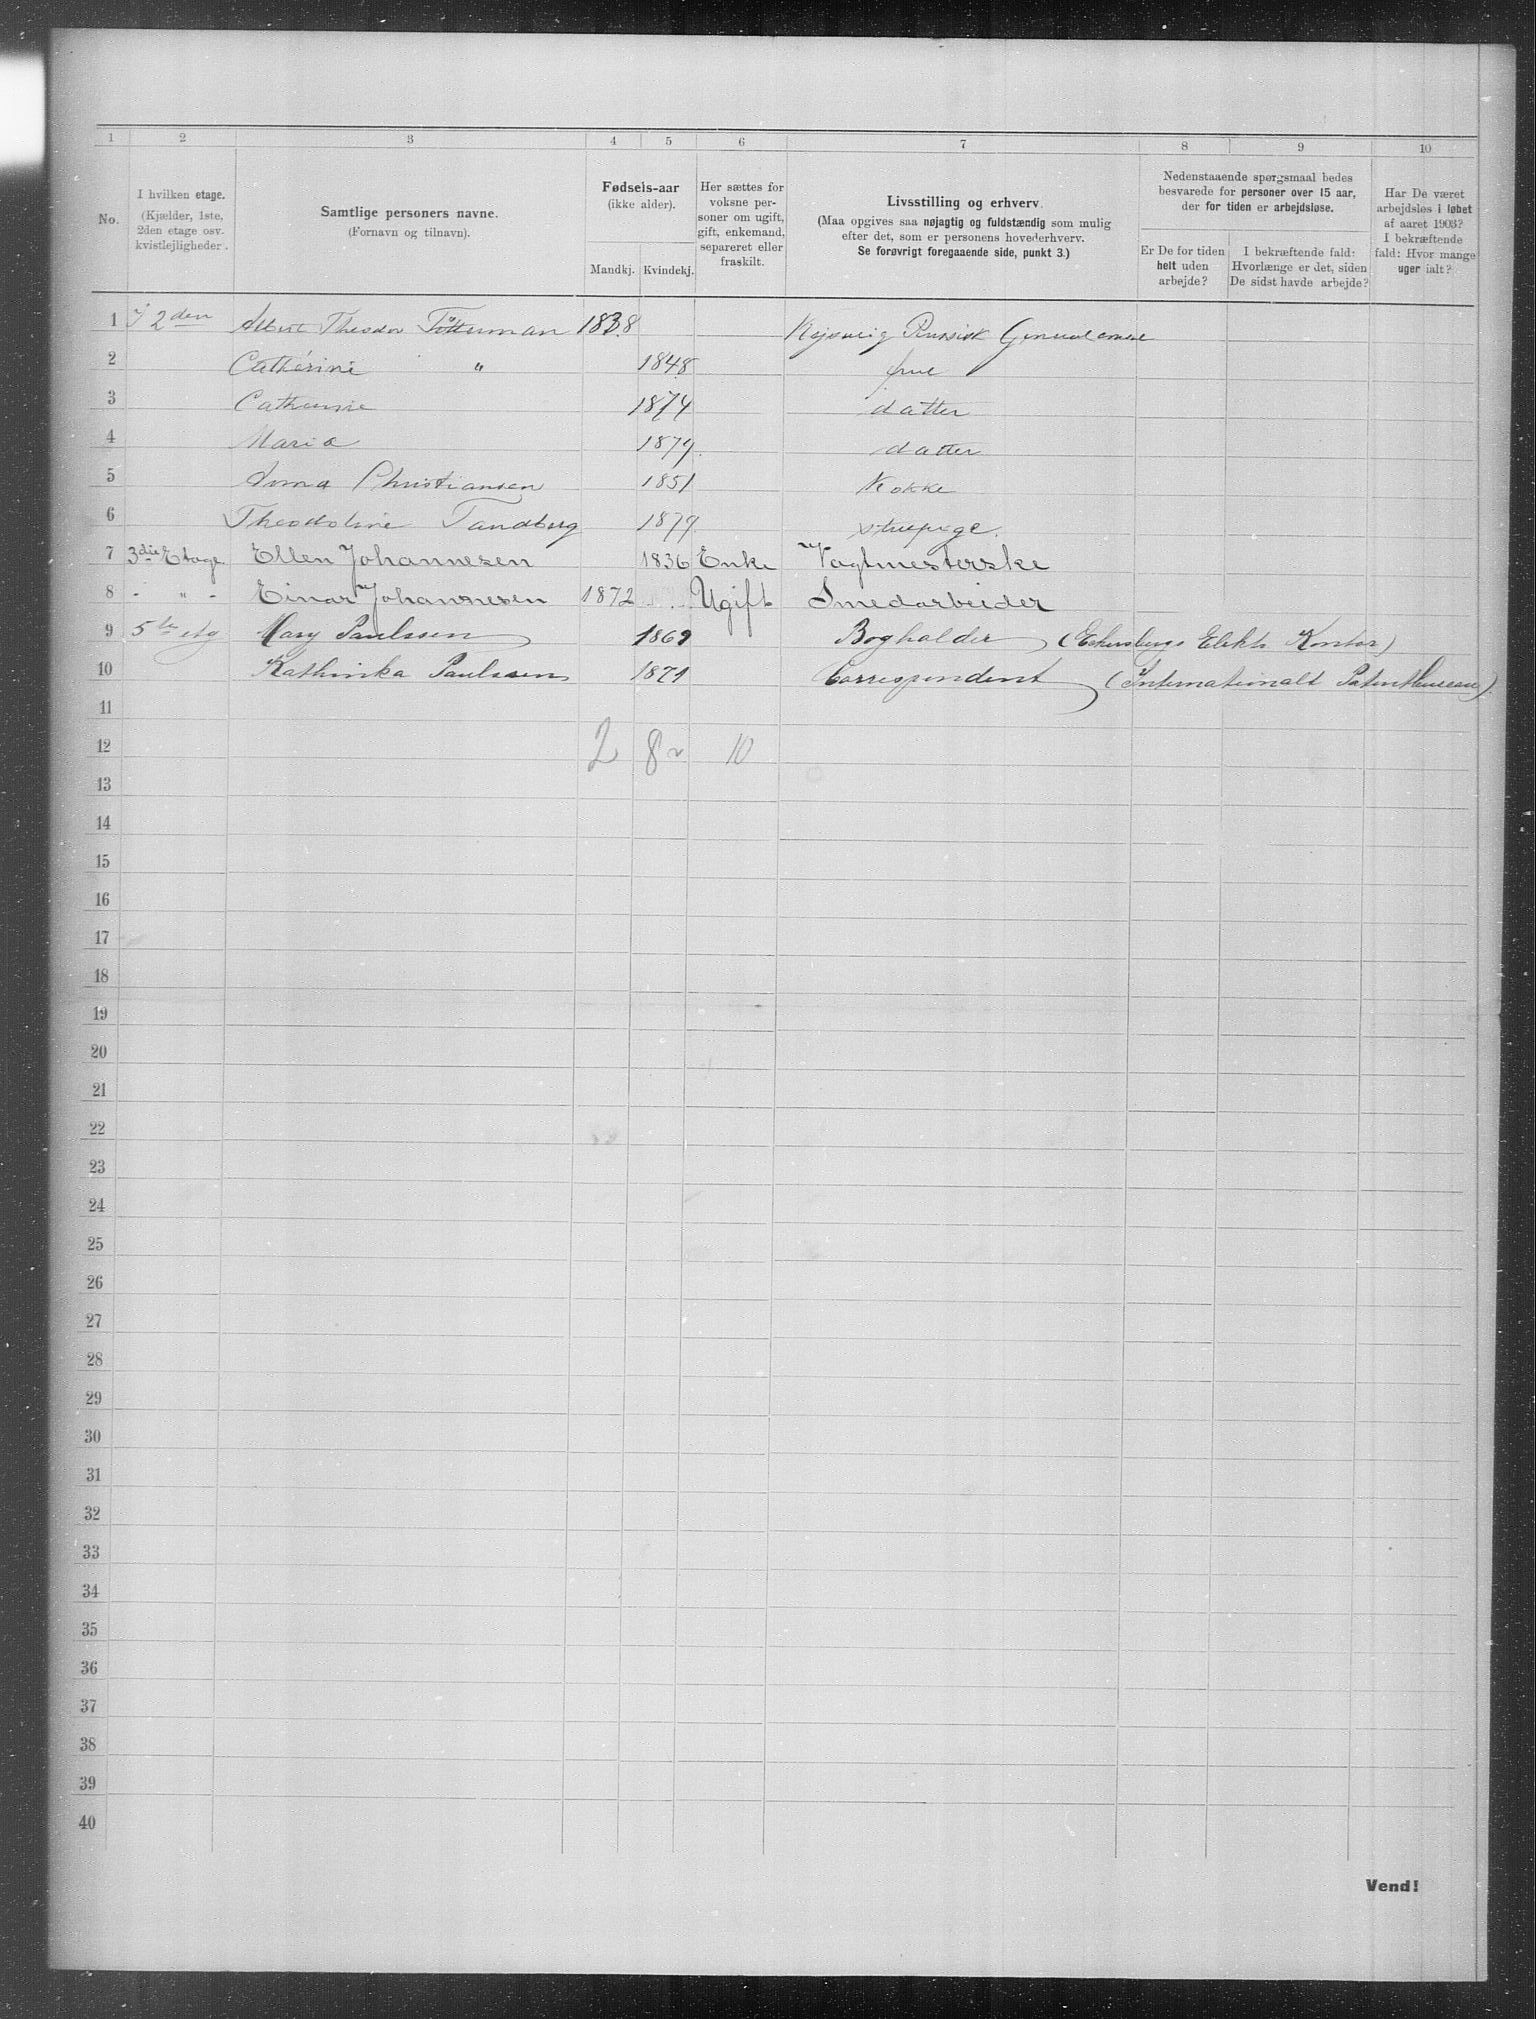 1 2 3 4 5 6 7 8 9 10
No.
I hvilken etage.
(Kjælder, 1ste,
2den etage osv.
kvistlejligheder.
Samtlige personers navne.
(Fornavn og tilnavn).
Fødsels-aar
(ikke alder).
Mandkj. Kvindekj.
Her sættes for
voksne per-
soner om ugift,
gift, enkemand,
separeret eller
fraskilt.
Livsstilling og erhverv.
(Maa opgives saa nøjagtig og fuldstændig som mulig
efter det, som er personens hovederhverv.
Se forøvrigt foregaaende side, punkt 3.)
Nedenstaaende spørgsmaal bedes
besvarede for personer over 15 aar,
der for tiden er arbejdsløse.
Er De for tiden
helt uden
arbejde?
I bekræftende fald:
Hvorlænge er det, siden
De sidst havde arbejde?
Har De været
arbejdsløs i løbet
af aaret 1903?
I bekræftende
fald: Hvor mange
uger ialt?
1 I 2den Albert Theodor Tötterman 1838 Kejserlig Russisk
2 Cathérine " 1848 frue
3 Catharine 1874 datter
4 Maria 1879 datter
5 Anna Christiansen 1851 Kokke
6 Theodoline Tandberg 1879 stuepige.
7 3die Etage Ellen Johannesen 1836 Enke Vagtmesterske
8 - " - Einar Johannesen 1872 Ugift Smedarbeider
9 5te etg Mary Paulssen 1869 Bogholder (Eckersbergs Elektr. Kontor)
10 Kathinka Paulssen 1871 Correspondent (Internationalt Patentbureau)
11
12 2 8 10
13
14
15
16
17
18
19
20
21
22
23
24
25
26
27
28
29
30
31
32
33
34
35
36
37
38
39
40
Vend!